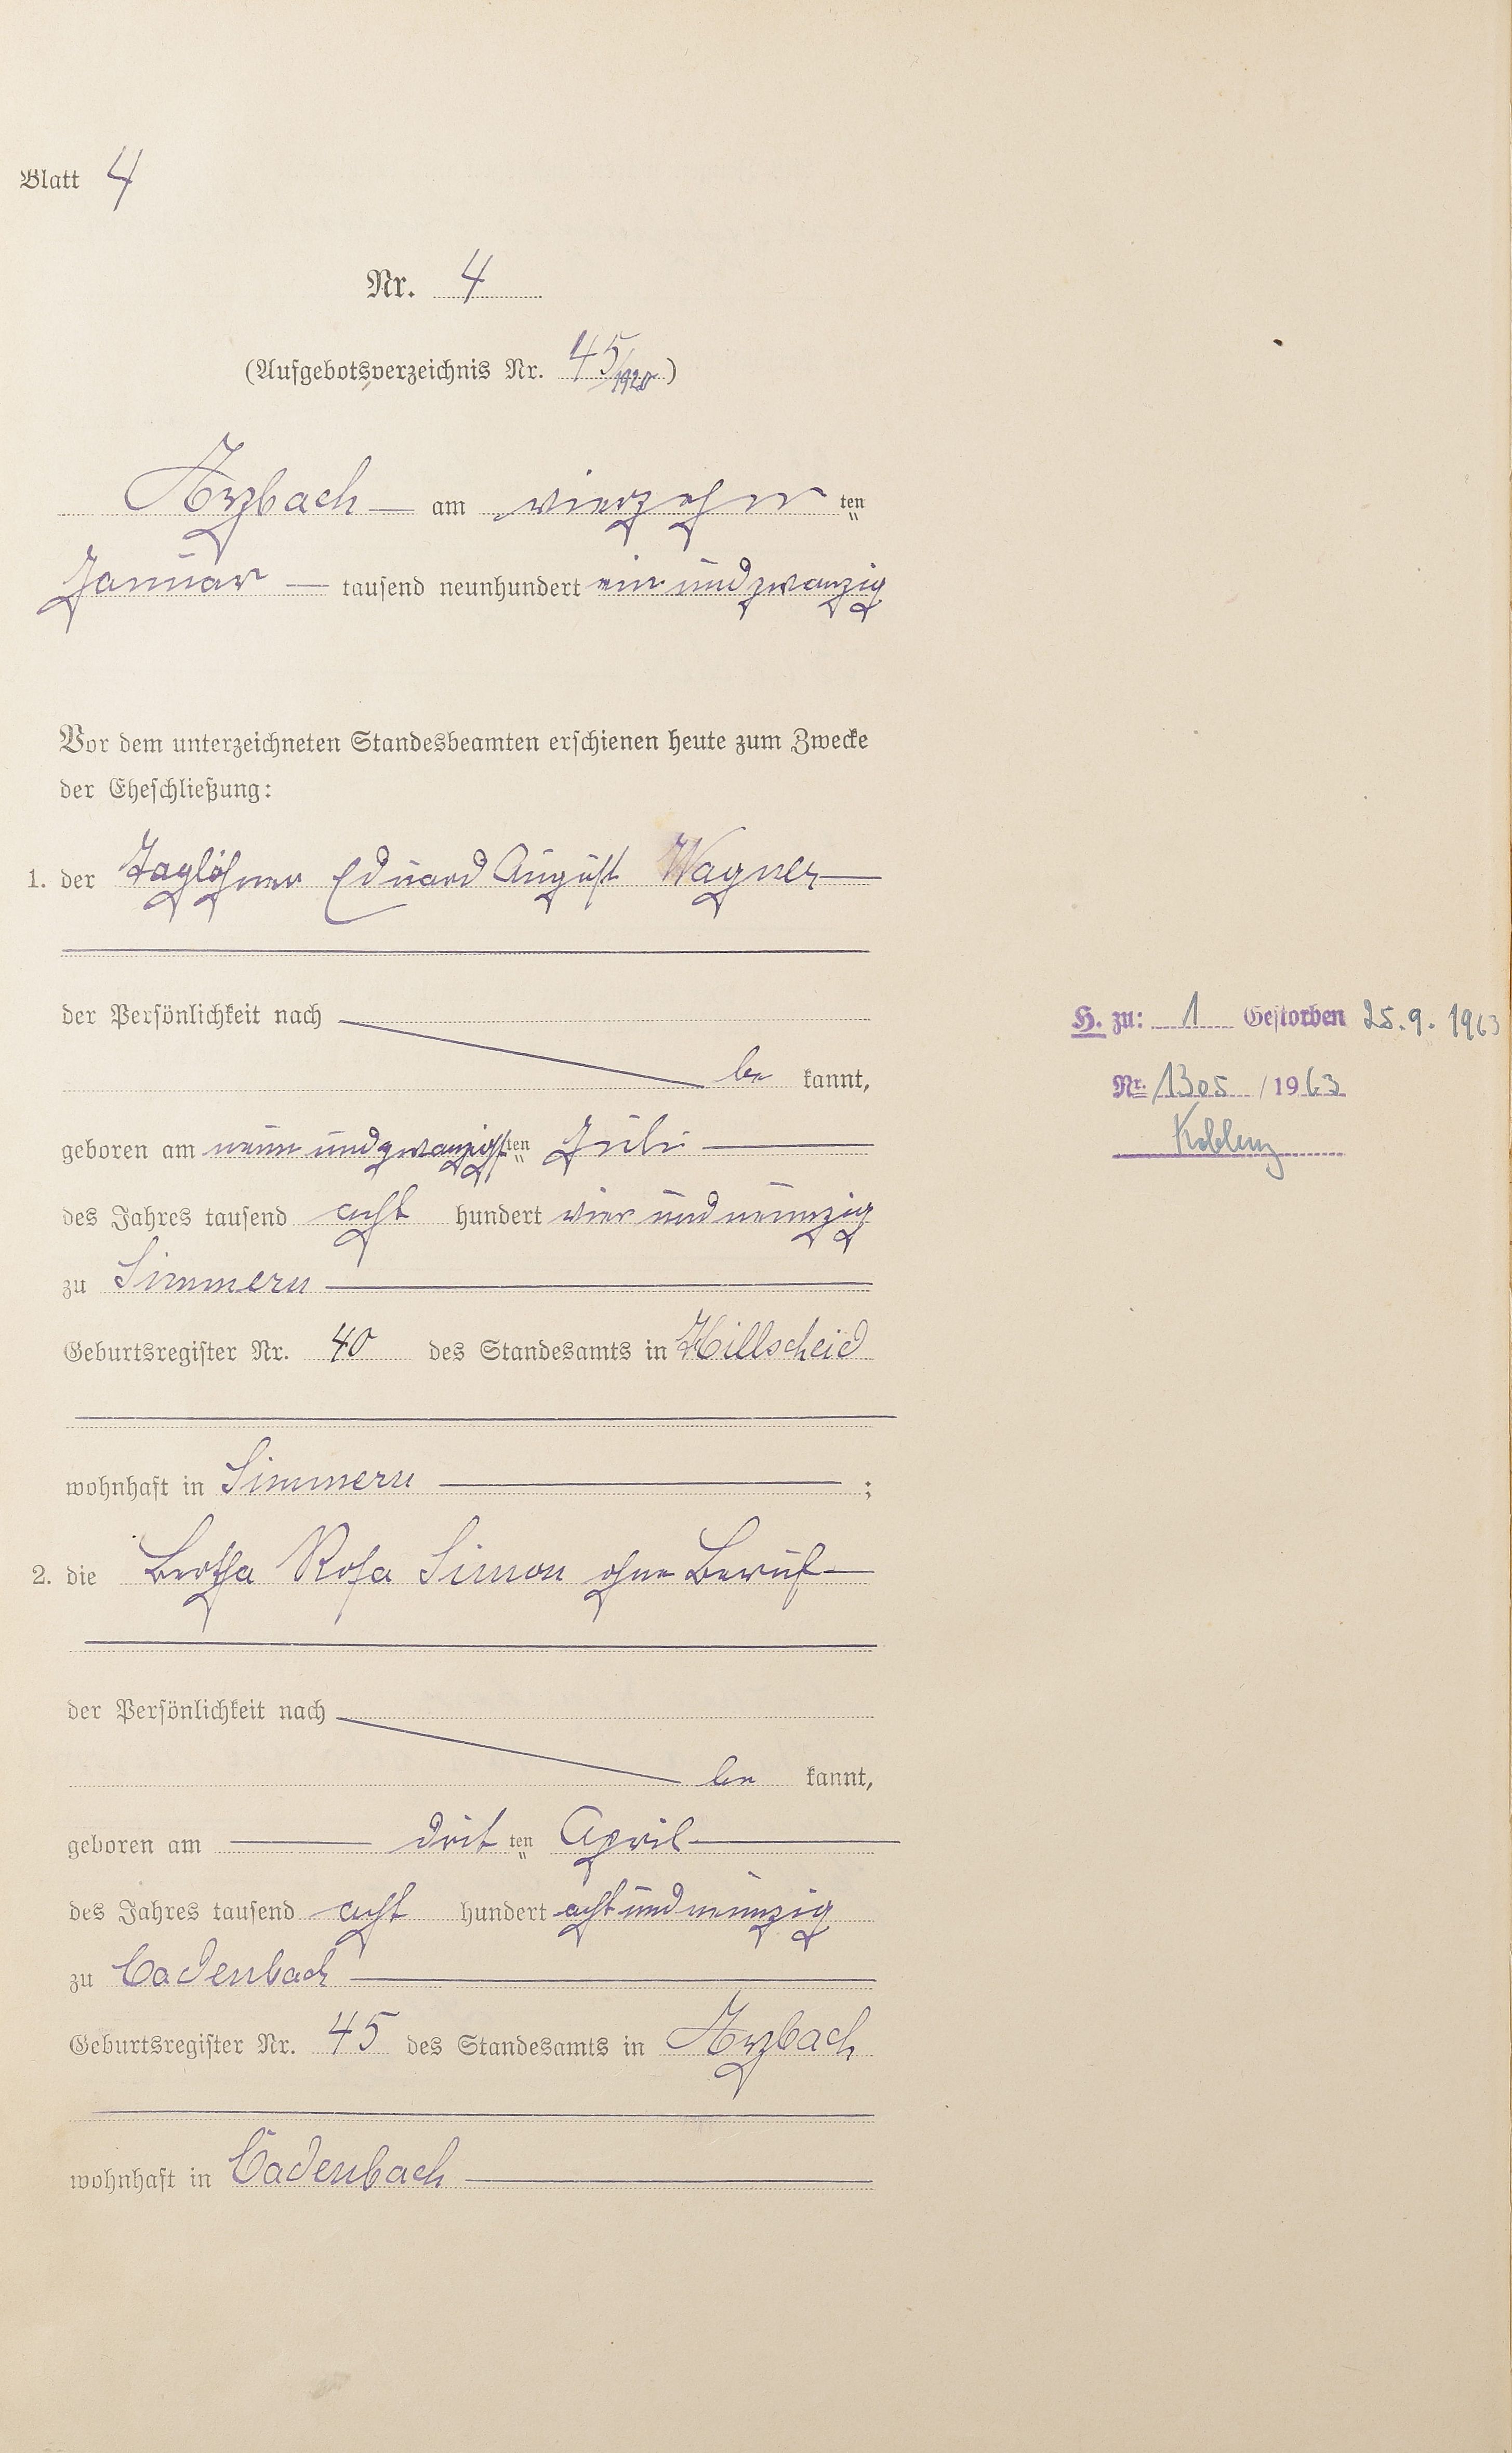 Blatt 4
Nr. 4
(Aufgebotsverzeichnis Nr. 45/1920)
Arzbach am vierzehn ten
Januar tausend neunhundert ein und zwanzig
Vor dem unterzeichneten Standesbeamten erschienen heute zum Zwecke
der Eheschließung:
1. der Taglöhner Eduard August Wagner
der Persönlichkeit nach
be kannt,
geboren am neun und zwanzigsten Juli
des Jahres tausend acht hundert vier und neunzig
zu Simmern
Geburtsregister Nr. 40 des Standesamts in Hillscheid
wohnhaft in Simmern ;
2. die Bertha Rosa Simon ohne Beruf
der Persönlichkeit nach
be kannt,
geboren am dritten April
des Jahres tausend acht hundert acht und neunzig
zu Cadenbach
Geburtsregister Nr. 45 des Standesamts in Arzbach
wohnhaft in Cadenbach
H. zu: 1 Gestorben 25.9.1963
Nr. 1305 / 1963
Koblenz